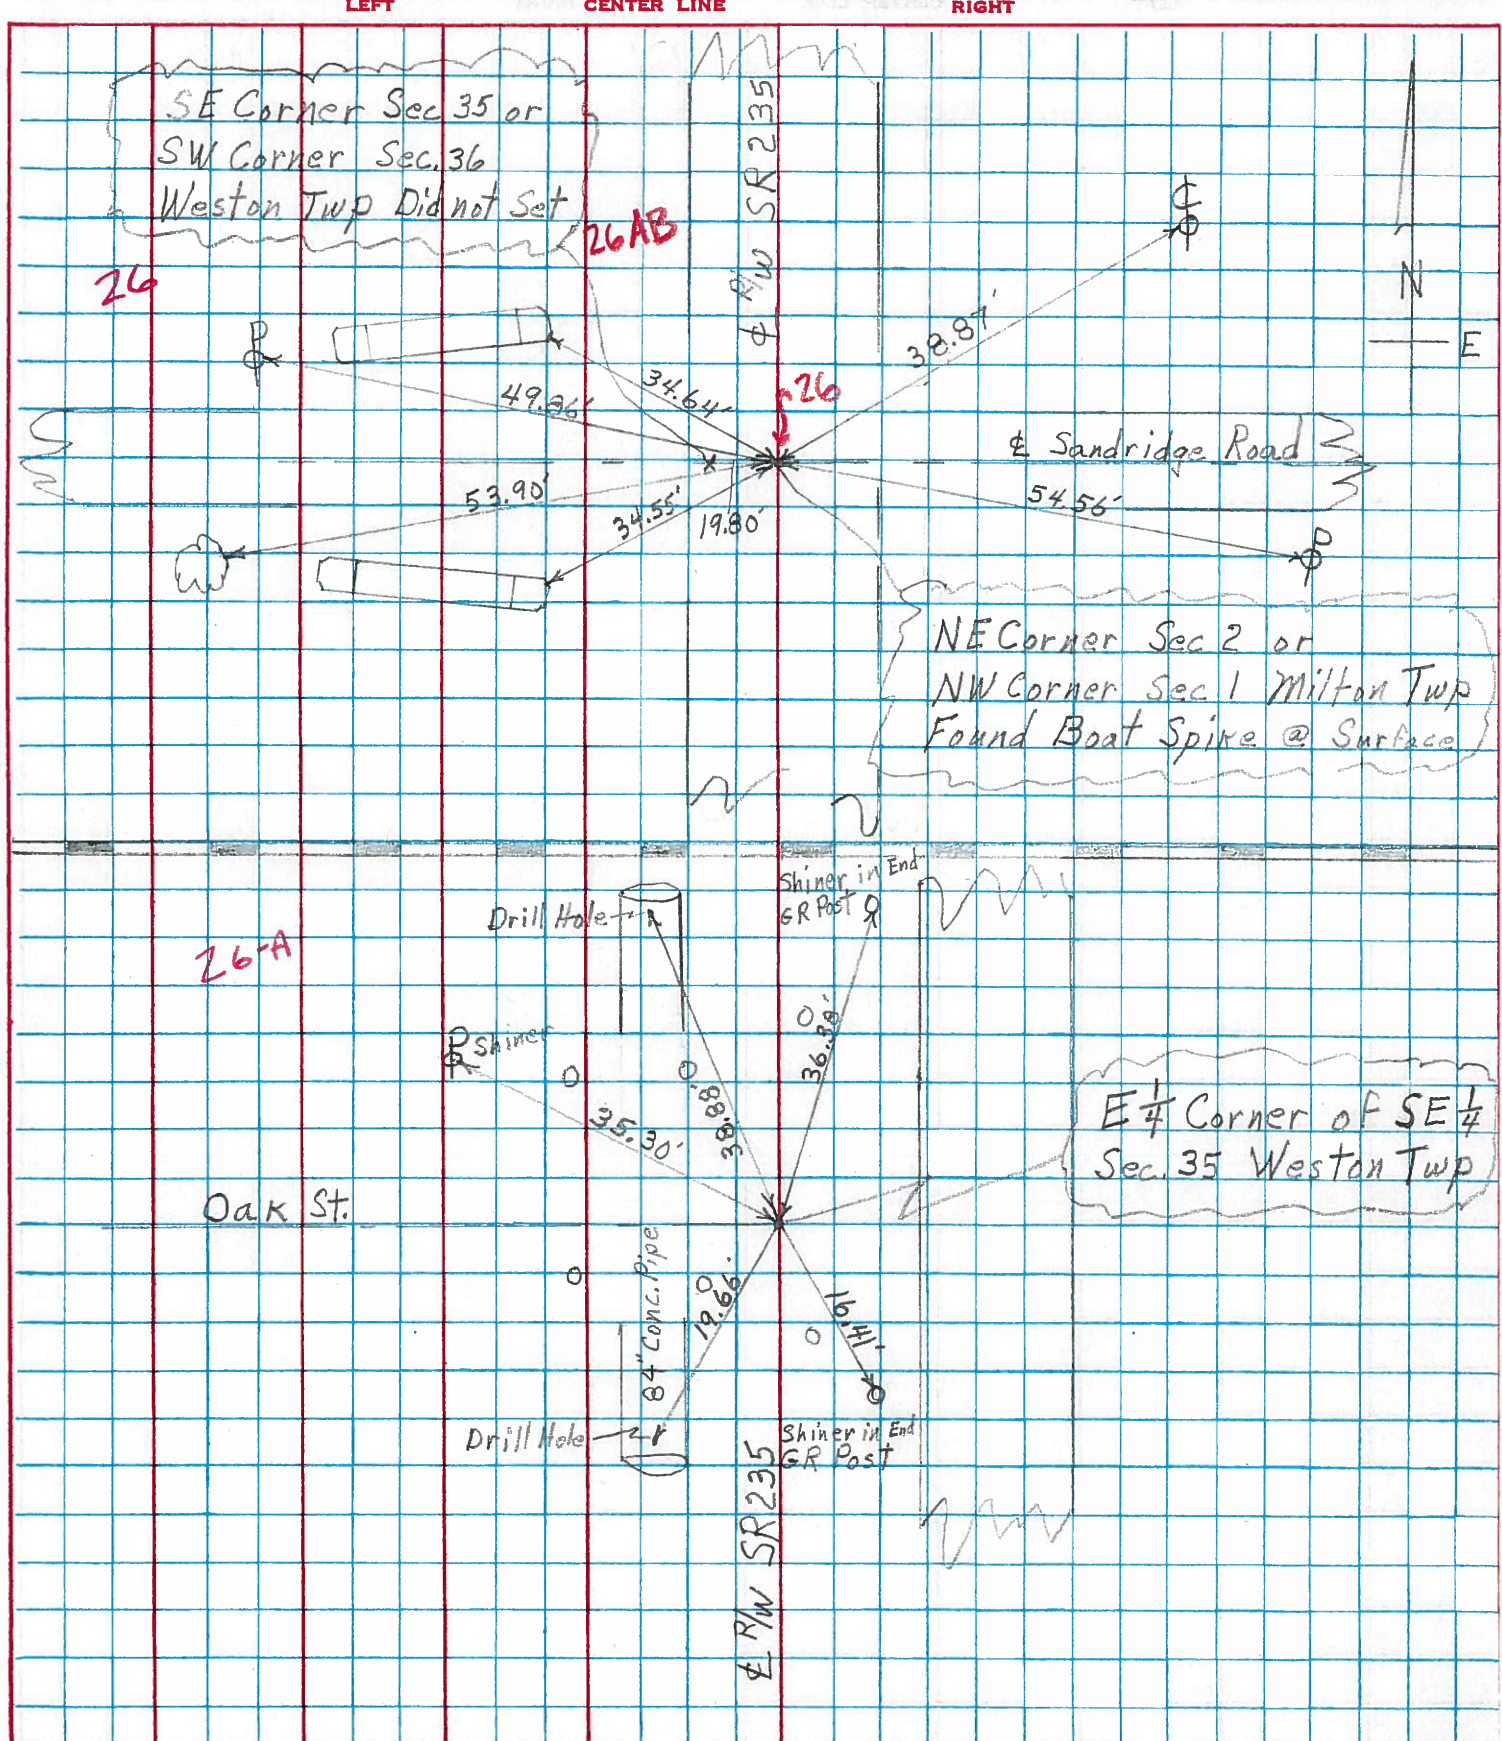 LEFT
CENTER LINE
RIGHT
SE Corner Sec 35 or
SW Corner Sec. 36
Weston Twp Did not Set
26AB
26
℄ R/W SR 235
℄
38.87'
N
E
P
49.86'
34.64'
26
℄ Sandridge Road
53.90'
34.55'
19.80'
54.56'
P
NE Corner Sec 2 or
NW Corner Sec 1 Milton Twp
Found Boat Spike @ Surface
Drill Hole
Shiner in End
GR Post
26-A
P Shiner
36.38'
35.30'
38.88'
E 1/4 Corner of SE 1/4
Sec. 35 Weston Twp
Oak St.
84" Conc. Pipe
19.66'
16.41'
Drill Hole
Shiner in End
GR Post
℄ R/W SR 235